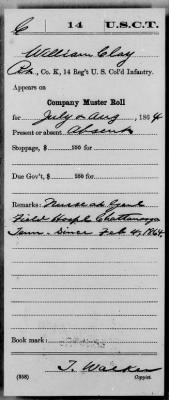 C 14 U.S.C.T.
William Clay
Pvt., Co. K, 14 Reg't U. S. Col'd Infantry.
Appears on
Company Muster Roll
for July & Aug, 1864
Present or absent Absent
Stoppage, $ 100 for
Due Gov't, $ 100 for
Remarks: Nurse at Genl
Field Hospl Chattanooga
Tenn. Since Feb 4, 1864.
Book mark:
T. Walker
(358) Copyist.